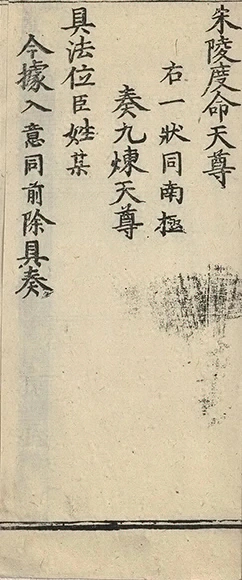 朱陵度命天尊
右一狀同南極
奏九煉天尊
具法位臣姓某
今據入意同前除具奏